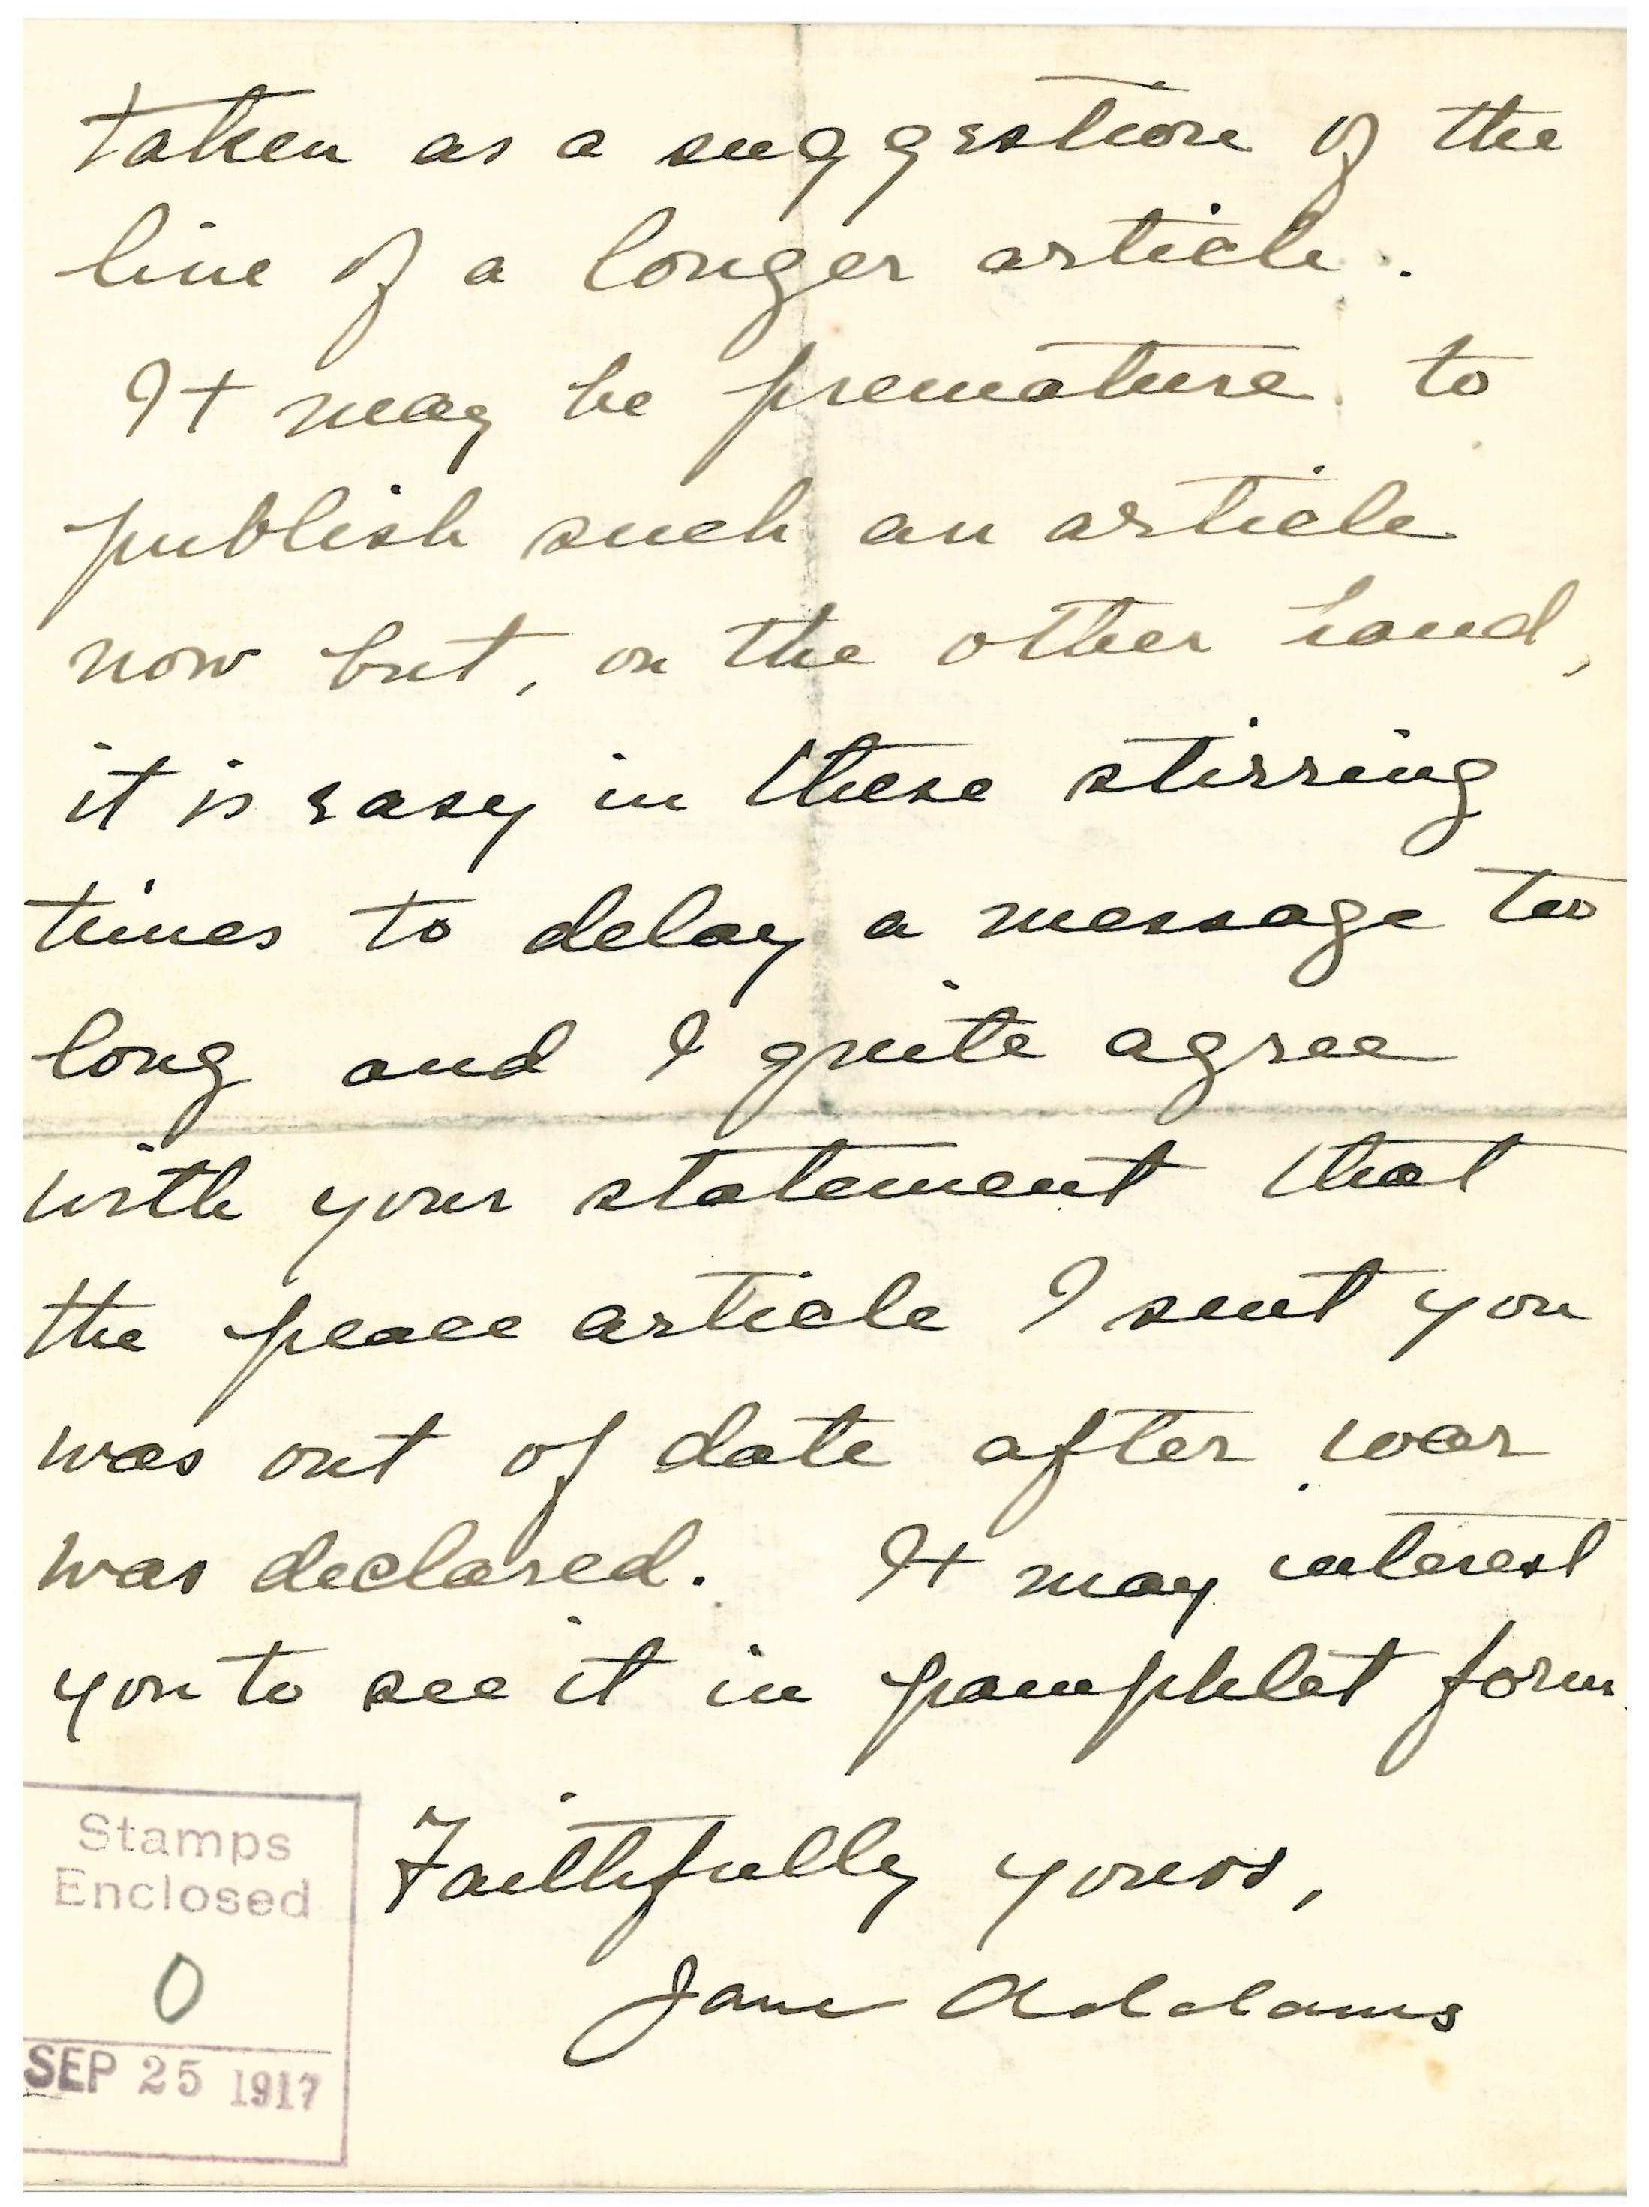 taken as a suggestion of the
line of a longer article.
It may be premature to
publish such an article
now but, on the other hand,
it is easy in these stirring
times to delay a message too
long and I quite agree
with your statement that
the peace article I sent you
was out of date after war
was declared. It may interest
you to see it in pamphlet form.
Faithfully yours,
Jane Addams
Stamps
Enclosed
0
SEP 25 1917